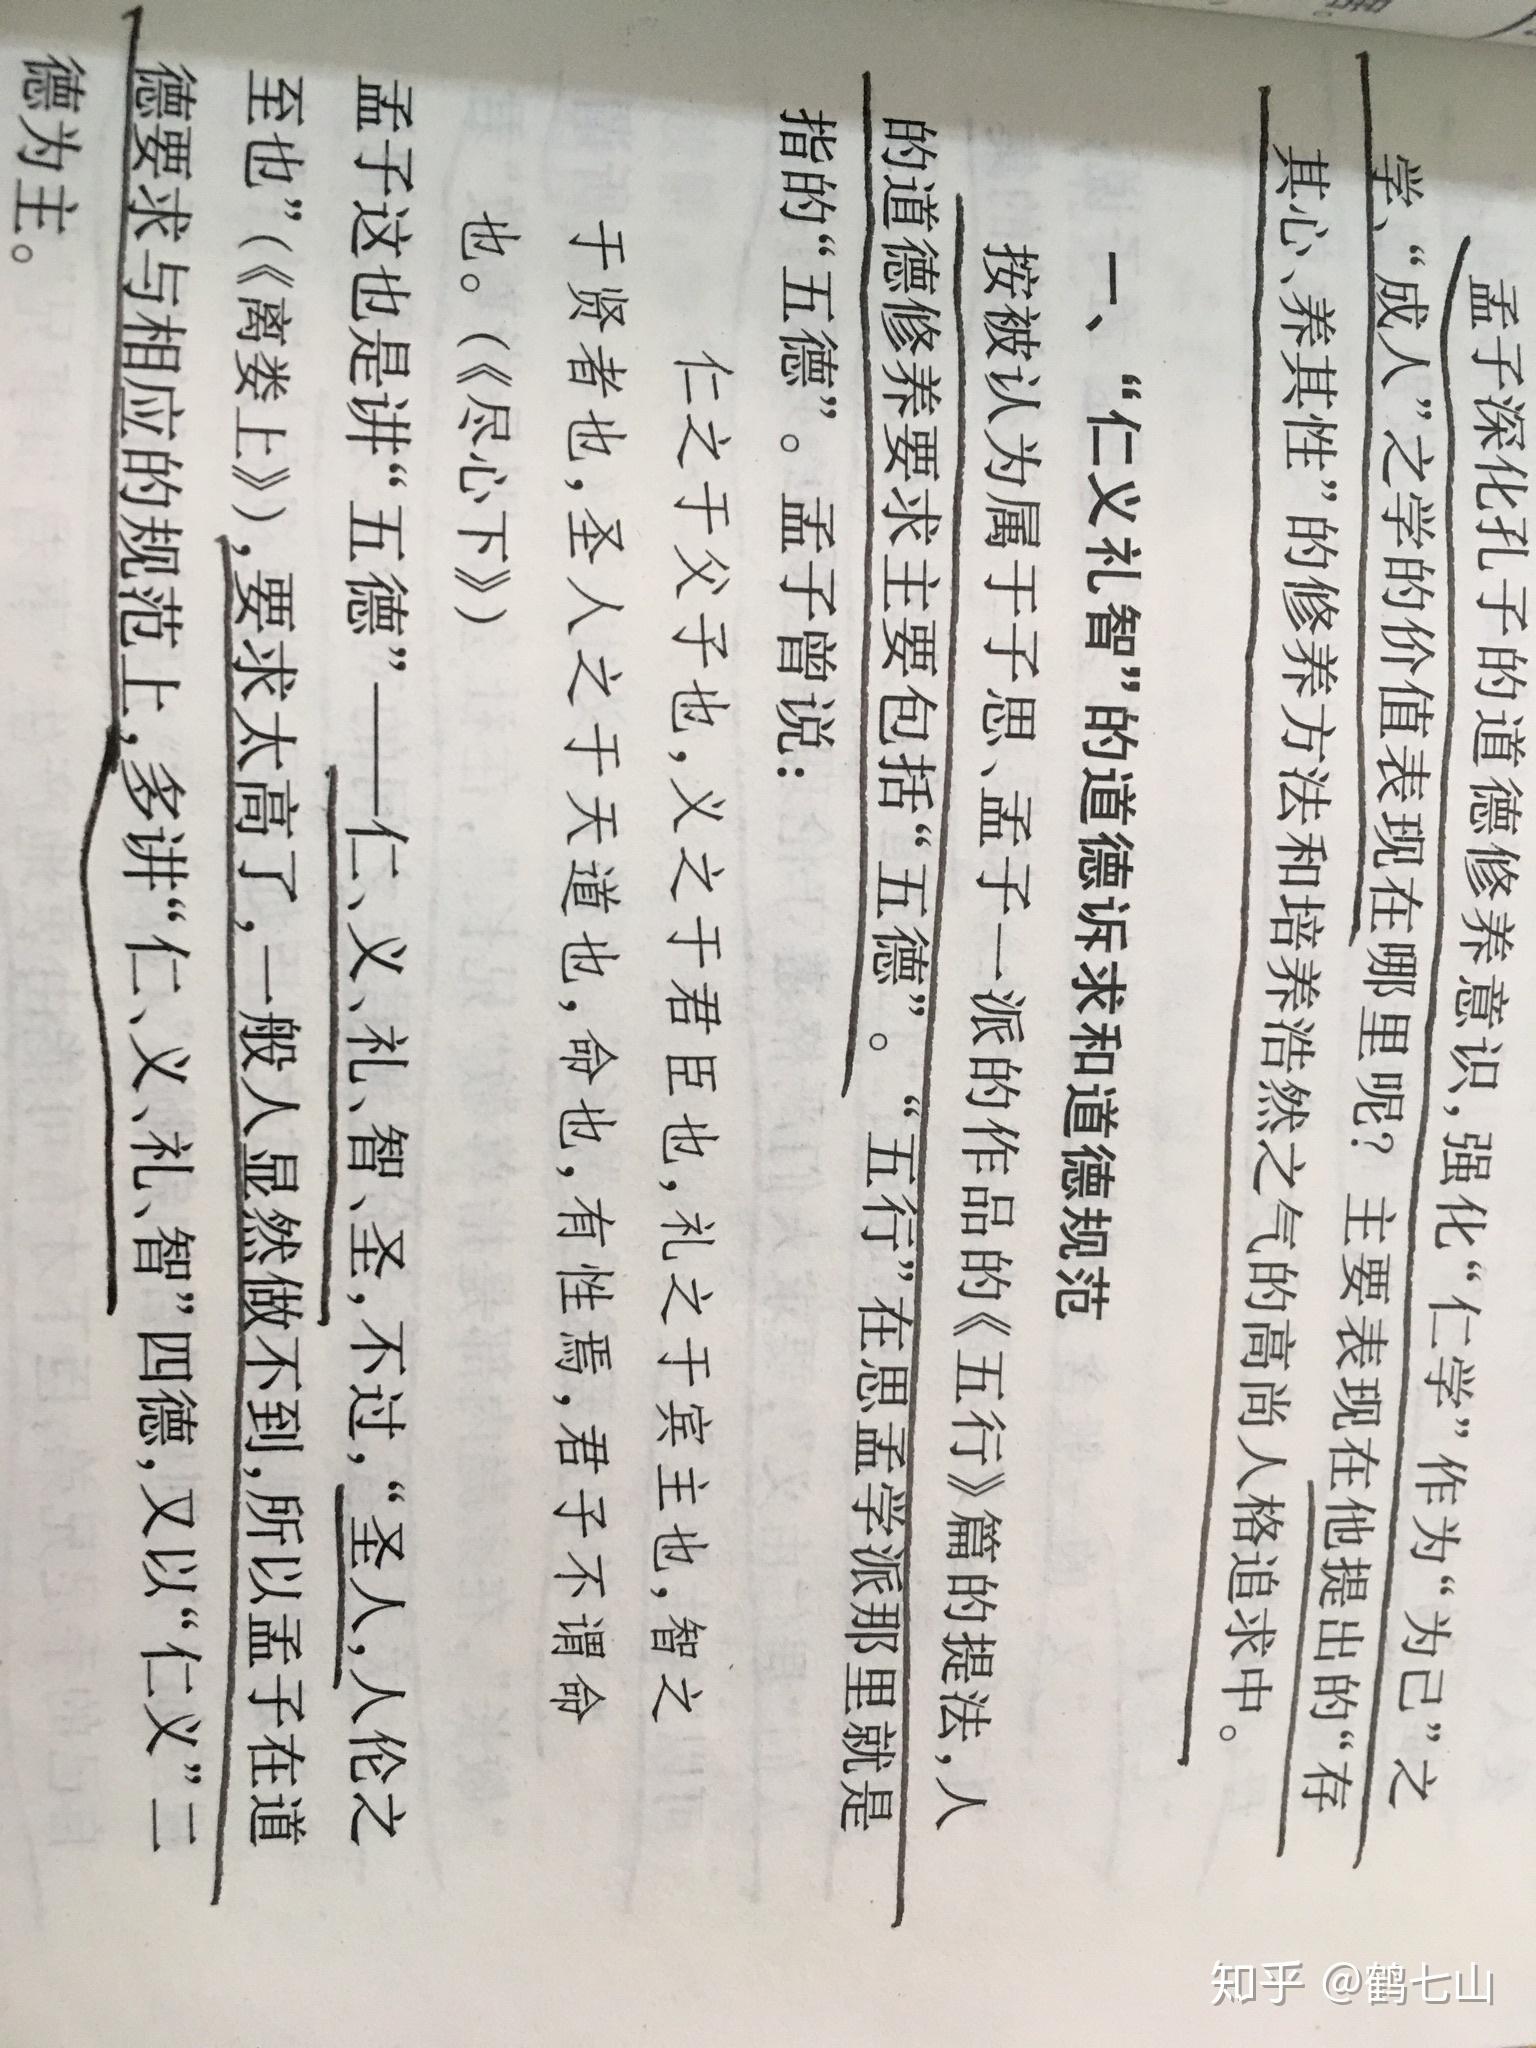 孟子深化孔子的道德修养意识，强化“仁学”作为“为己”之
学、“成人”之学的价值表现在哪里呢？主要表现在他提出的“存
其心、养其性”的修养方法和培养浩然之气的高尚人格追求中。
一、“仁义礼智”的道德诉求和道德规范
按被认为属于子思、孟子一派的作品的《五行》篇的提法，人
的道德修养要求主要包括“五德”。“五行”在思孟学派那里就是
指的“五德”。孟子曾说：
仁之于父子也，义之于君臣也，礼之于宾主也，智之
于贤者也，圣人之于天道也，命也，有性焉，君子不谓命
也。（《尽心下》）
孟子这也是讲“五德”——仁、义、礼、智、圣，不过，“圣人，人伦之
至也”（《离娄上》），要求太高了，一般人显然做不到，所以孟子在道
德要求与相应的规范上，多讲“仁、义、礼、智”四德，又以“仁义”二
德为主。
知乎 @鹤七山